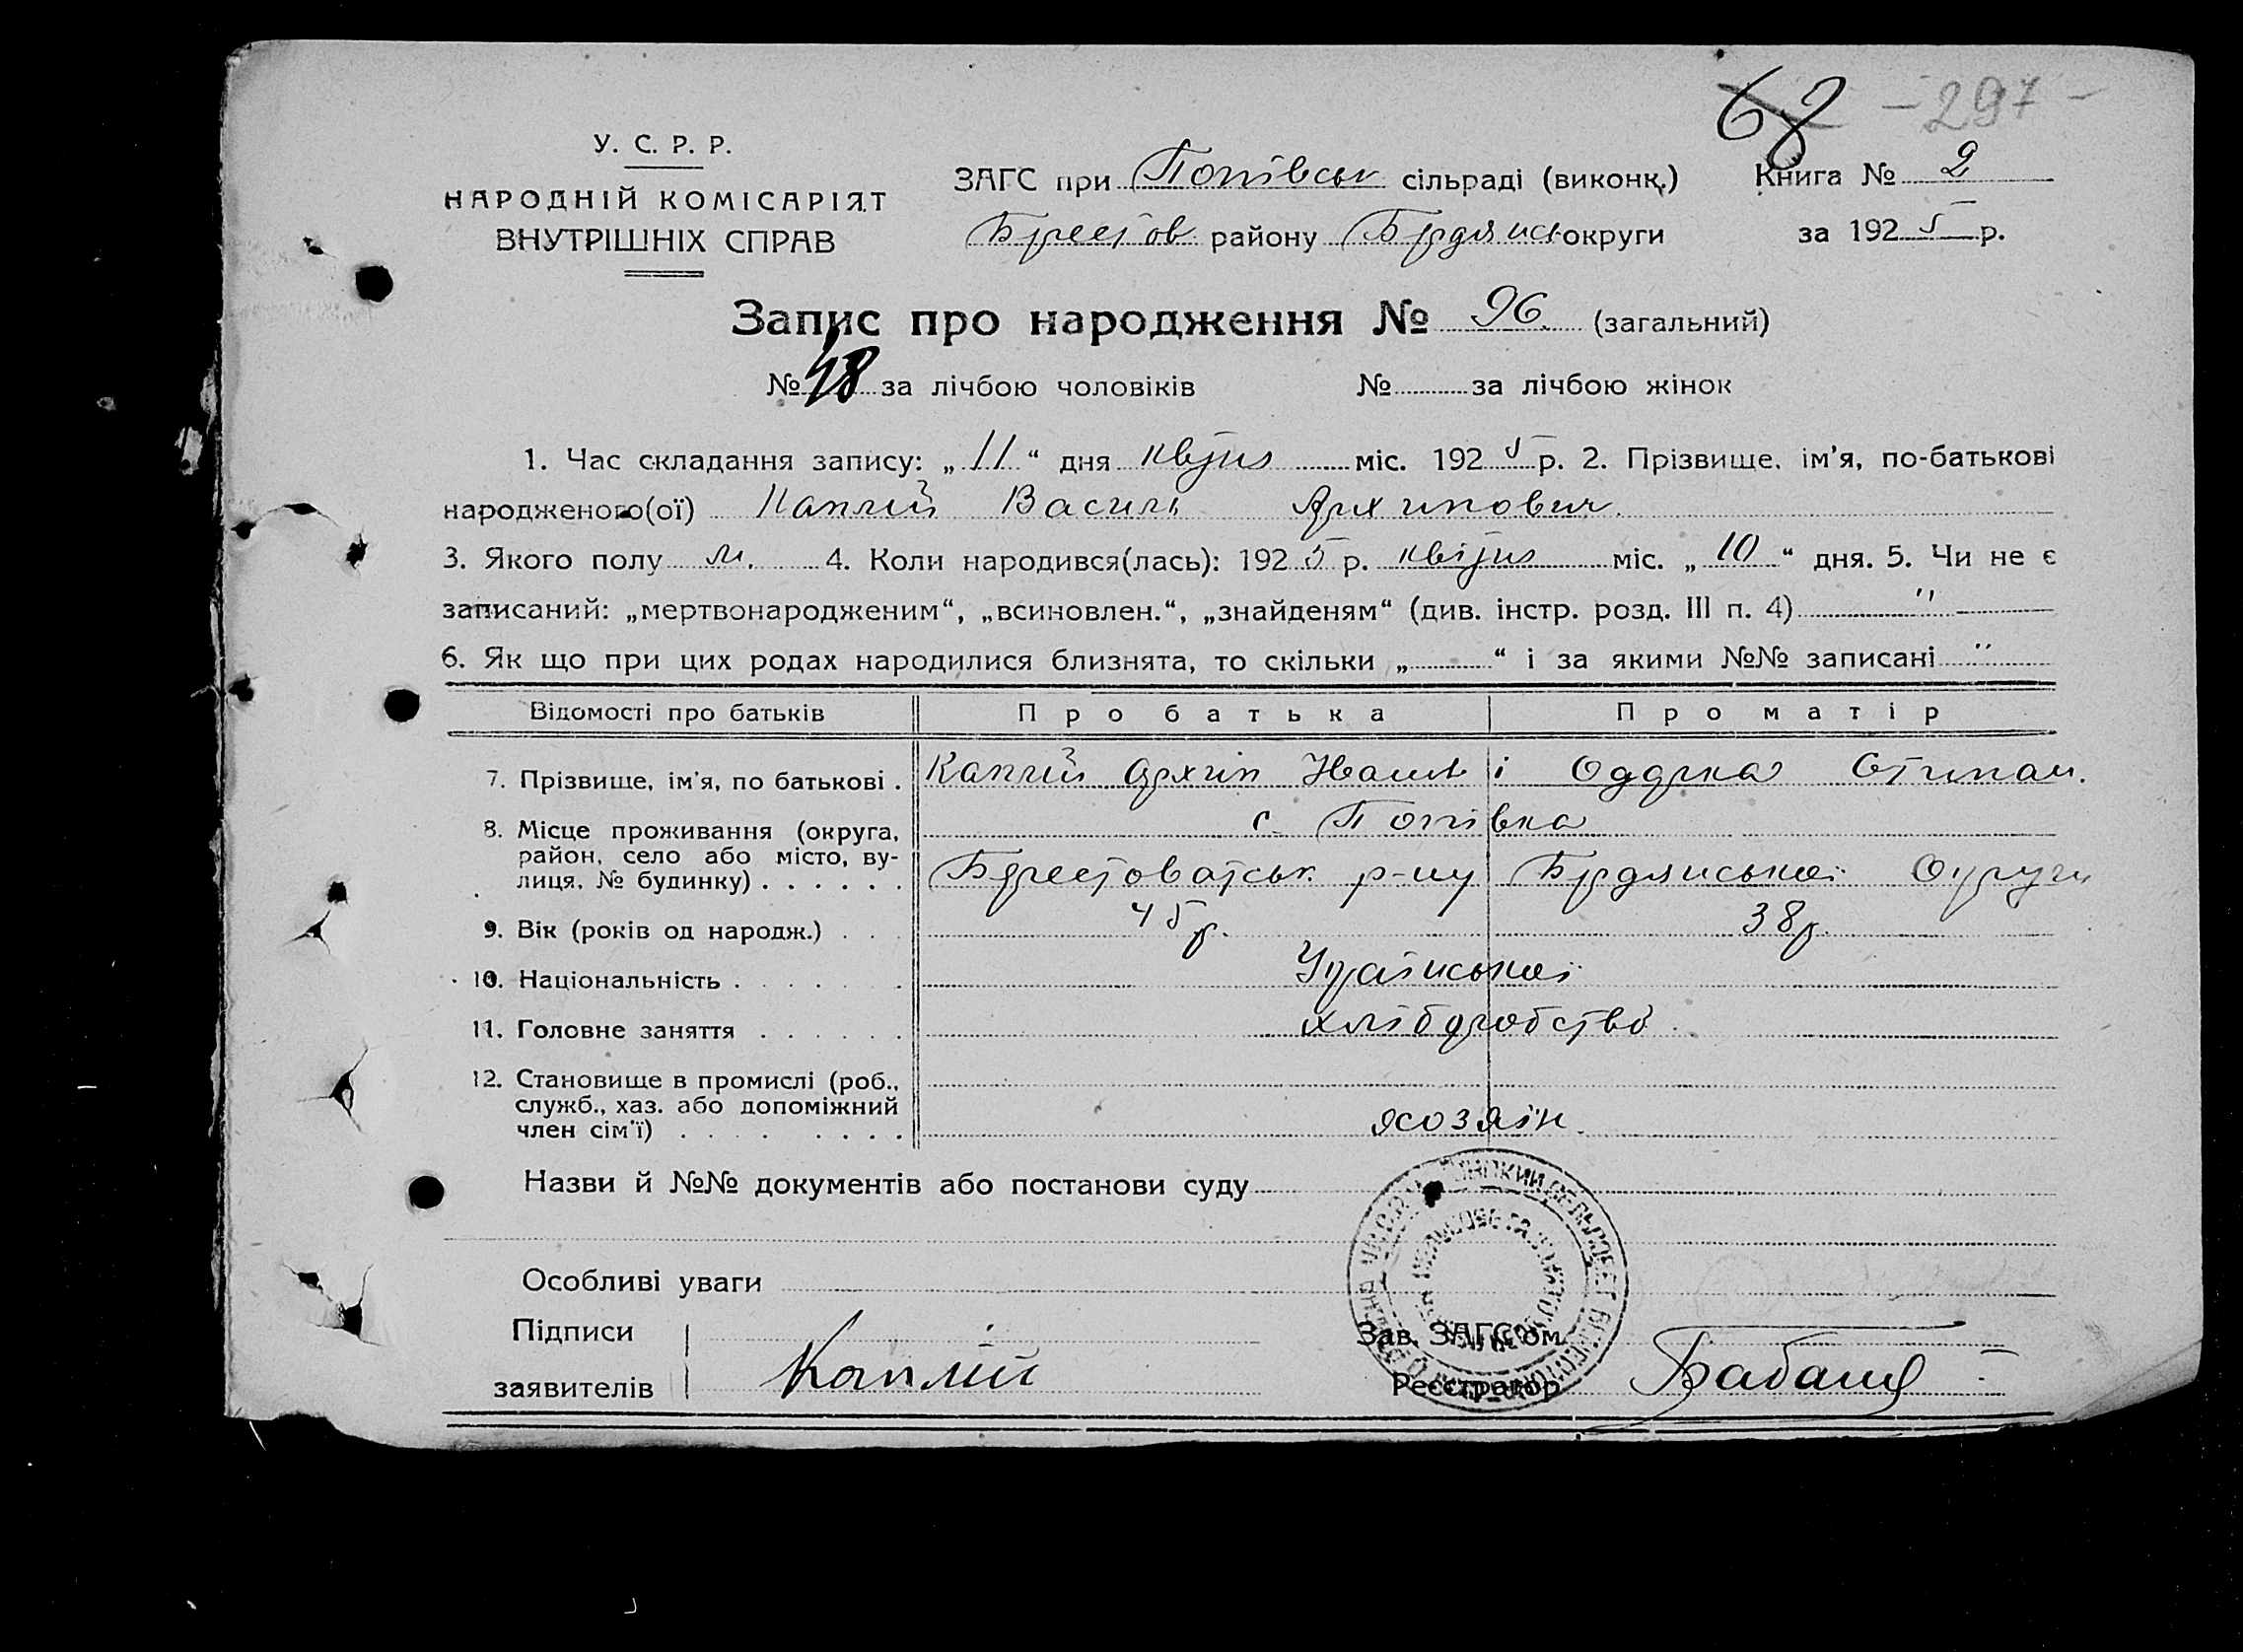 68 - 297 -
У. С. Р. Р.
НАРОДНІЙ КОМІСАРІЯТ
ВНУТРІШНІХ СПРАВ
ЗАГС при Попівськ сільраді (виконк.) Книга № 2
Брестов району Брдянськ округи за 1925 р.
Запис про народження № 96 (загальний)
№ 48 за лічбою чоловіків № за лічбою жінок
1. Час складання запису: „ 11 “ дня квітня міс. 1925 р. 2. Прізвище, ім’я, по-батькові
народженого(ої) Каплій Василь Архипович
3. Якого полу м. 4. Коли народився(лась): 1925 р. квітня міс. „ 10 “ дня. 5. Чи не є
записаний: „мертвонародженим“, „всиновлен.“, „знайденям“ (див. інстр. розд. III п. 4) "
6. Як що при цих родах народилися близнята, то скільки „ “ і за якими №№ записані "
Відомості про батьків Про батька Про матір
7. Прізвище, ім’я, по батькові . Каплій Архип Іванов і Оддрка Степан.
8. Місце проживання (округа, с. Попівка
район, село або місто, ву-
лиця, № будинку) . . . . . . Берестоватськ р-ну Брдянської Округи
9. Вік (років од народж.) . . . 45 р. 38 р.
10. Національність . . . . . . . Української
11. Головне заняття . . . . . . хліборобство
12. Становище в промислі (роб.,
служб., хаз. або допоміжний
член сім’ї) . . . . . . . . хозяїн.
Назви й №№ документів або постанови суду
Особливі уваги
Підписи Зав. ЗАГС’ом
заявителів Каплій Реєстратор